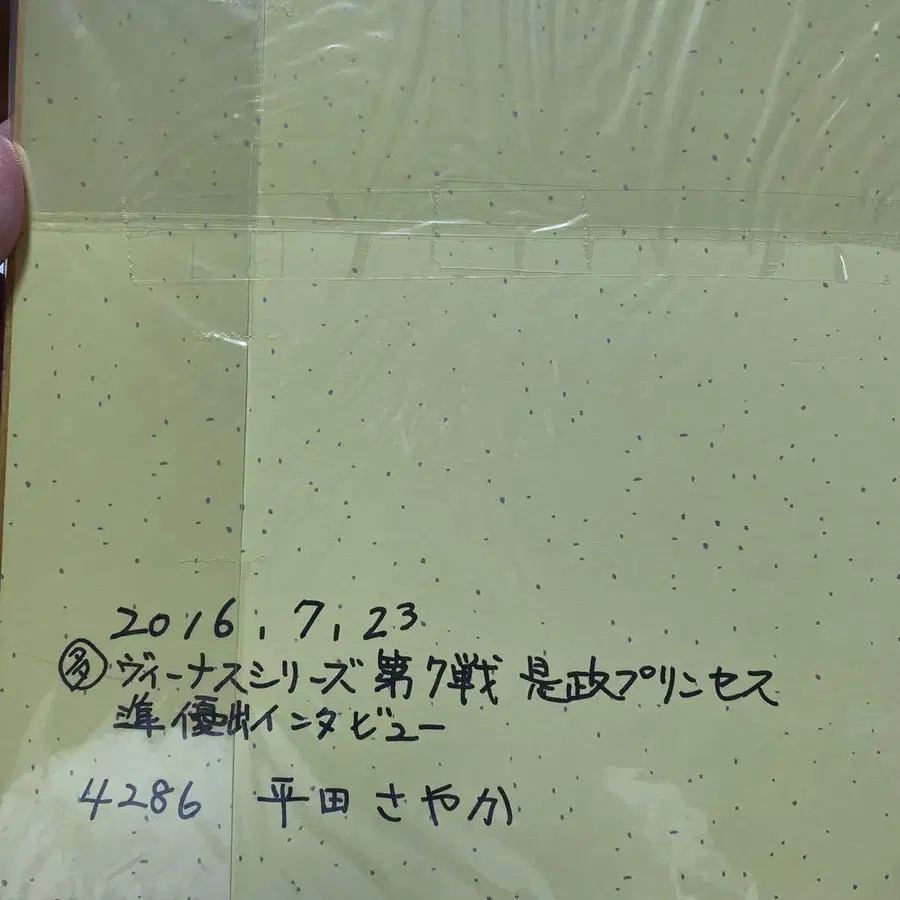 2016.7.23
㊕ヴィーナスシリーズ 第7戦 是政プリンセス
準優出インタビュー
4286 平田さやか